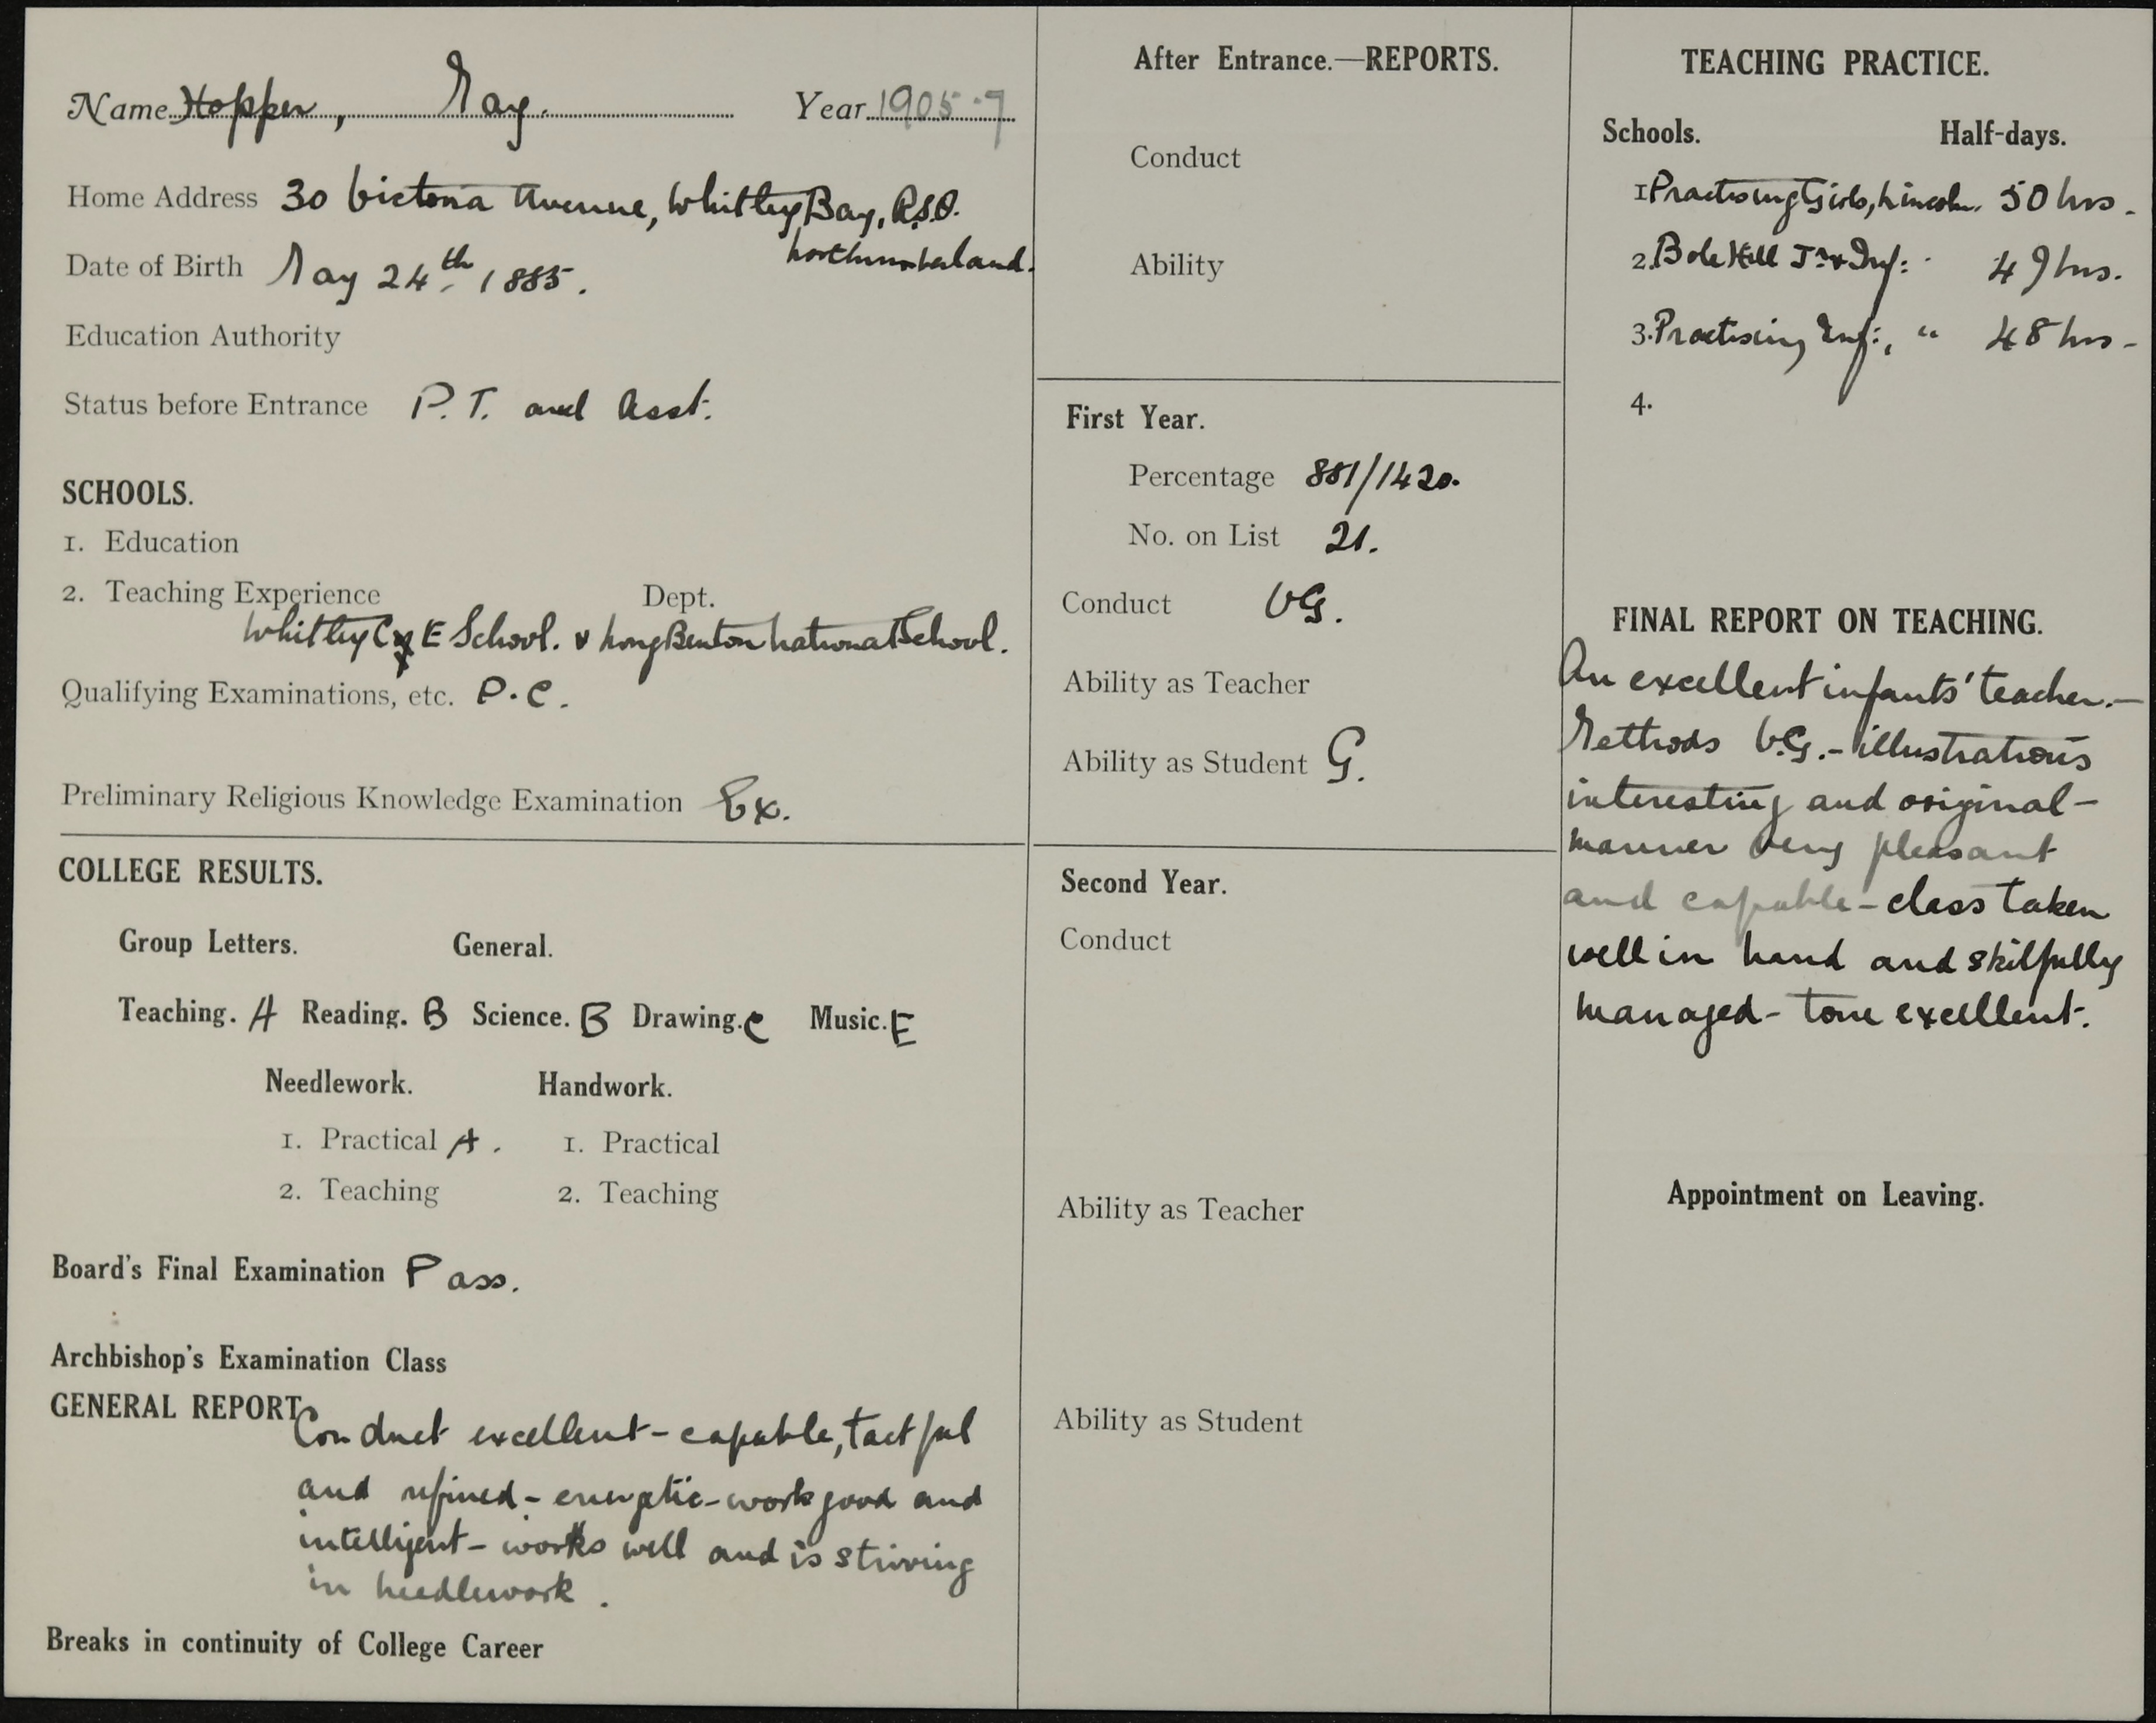 Name Hopper, May. Year 1905-7
Home Address 30 Victoria Avenue, Whitley Bay, R.S.O.
Northumberland.
Date of Birth May 24th 1885.
Education Authority
Status before Entrance P.T. and Asst.
SCHOOLS.
1. Education
2. Teaching Experience Dept.
Whitley C of E School. & Long Benton National School.
Qualifying Examinations, etc. P.C.
Preliminary Religious Knowledge Examination Ex.
COLLEGE RESULTS.
Group Letters. General.
Teaching. A Reading. B Science. B Drawing. C Music. E
Needlework. Handwork.
1. Practical A. 1. Practical
2. Teaching 2. Teaching
Board's Final Examination Pass.
Archbishop's Examination Class
GENERAL REPORT Conduct excellent - capable, tactful
and refined - energetic - work good and
intelligent - works well and is striving
in needlework.
Breaks in continuity of College Career
After Entrance.—REPORTS.
Conduct
Ability
First Year.
Percentage 881/1420.
No. on List 21.
Conduct VG.
Ability as Teacher
Ability as Student G.
Second Year.
Conduct
Ability as Teacher
Ability as Student
TEACHING PRACTICE.
Schools. Half-days.
1 Practising Girls, Lincoln. 50 hrs.
2. Bole Hill Jr & Inf: 49 hrs.
3. Practising Inf:, " 48 hrs -
4.
FINAL REPORT ON TEACHING.
An excellent infants' teacher. -
Methods V.G. - illustrations
interesting and original -
manner very pleasant
and capable - class taken
well in hand and skilfully
managed - tone excellent.
Appointment on Leaving.